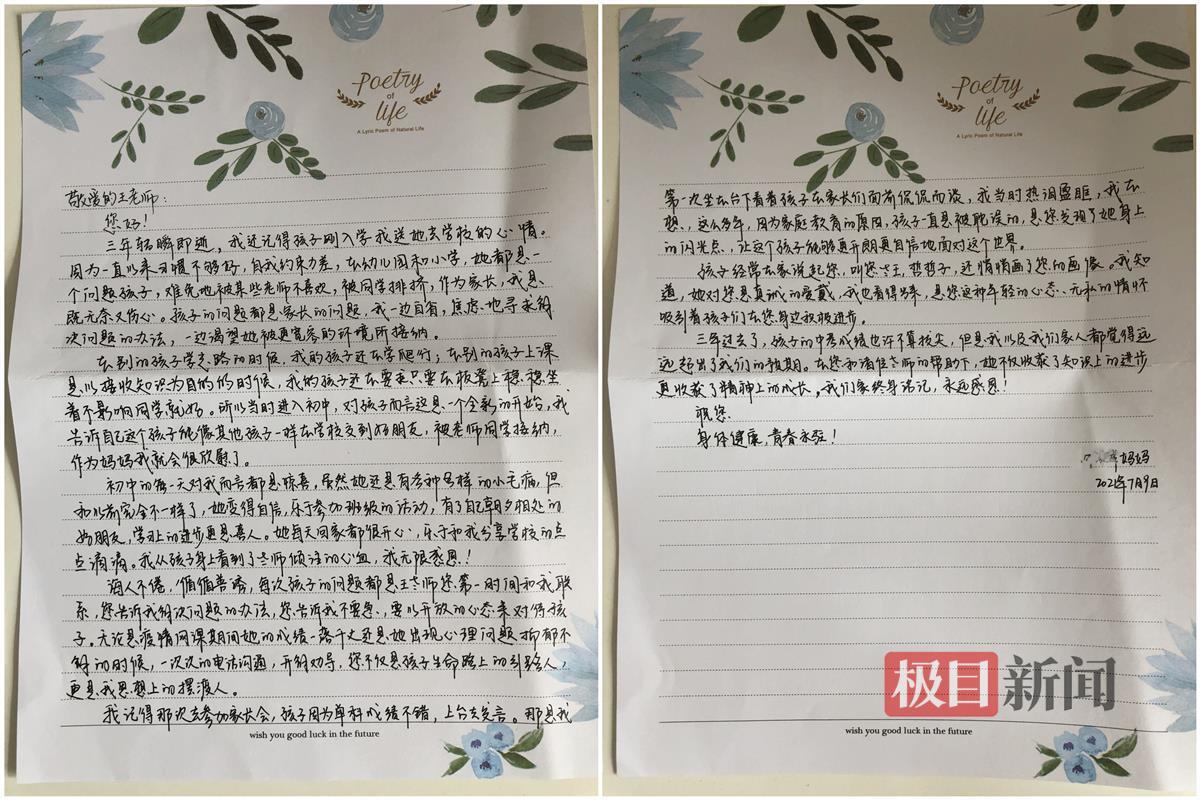 Poetry
of
life
A Lyric Poem of Natural Life
敬爱的王老师:
您好!
三年转瞬即逝,我还记得孩子刚入学我送她去学校的心情。
因为一直以来习惯不够好,自我约束力差,在幼儿园和小学,她都是一
个问题孩子,难免地被某些老师不喜欢,被同学排挤,作为家长,我是
既无奈又伤心。孩子的问题都是家长的问题,我一边自省,焦虑地寻求解
决问题的办法,一边渴望她被更宽容的环境所接纳。
在别的孩子学走路的时候,我的孩子还在学爬行;在别的孩子上课
是以接收知识为目的的时候,我的孩子还在要求只要在板凳上稳稳坐
着不影响同学就好。所以当时进入初中,对孩子而言这是一个全新的开始,我
告诉自己这个孩子能像其他孩子一样在学校交到好朋友,被老师同学接纳,
作为妈妈我就会很欣慰了。
初中的每一天对我而言都是惊喜,虽然她还是有各种各样的小毛病,但
和以前完全不一样了,她变得自信,乐于参加班级的活动,有了自己朝夕相处的
好朋友,学习上的进步更是喜人。她每天回家都很开心,乐于和我分享学校的点
点滴滴。我从孩子身上看到了老师倾注的心血,我无限感恩!
诲人不倦,循循善诱,每次孩子的问题都是王老师您第一时间和我联
系,您告诉我解决问题的办法,您告诉我不要急,要以开放的心态来对待孩
子。无论是疫情网课期间她的成绩一落千丈还是她出现心理问题抑郁不
解的时候,一次次的电话沟通,开解劝导,您不仅是孩子生命路上的引路人,
更是我思想上的摆渡人。
我记得那次去参加家长会,孩子因为单科成绩不错,上台去发言。那是我
wish you good luck in the future
Poetry
of
life
A Lyric Poem of Natural Life
第一次坐在台下看着孩子在家长们面前侃侃而谈,我当时热泪盈眶,我在
想,这么多年,因为家庭教育的原因,孩子一直是被耽误的,是您发现了她身上
的闪光点,让这个孩子能够更开朗更自信地面对这个世界。
孩子经常在家说起您,叫您老王,哲哲子,还悄悄画了您的画像。我知
道,她对您是真诚的爱戴,我也看得出来,是您这种年轻的心态、无私的情怀
吸引着孩子们在您身边积极进步。
三年过去了,孩子的中考成绩也许不算拔尖,但是我以及我们家人都觉得远
远超出了我们的预期。在您和诸位老师的帮助下,她不仅收获了知识上的进步
更收获了精神上的成长。我们家终身铭记,永远感恩!
祝您
身体健康,青春永驻!
妈妈
2021年7月9日
wish you good luck in the future
极目新闻